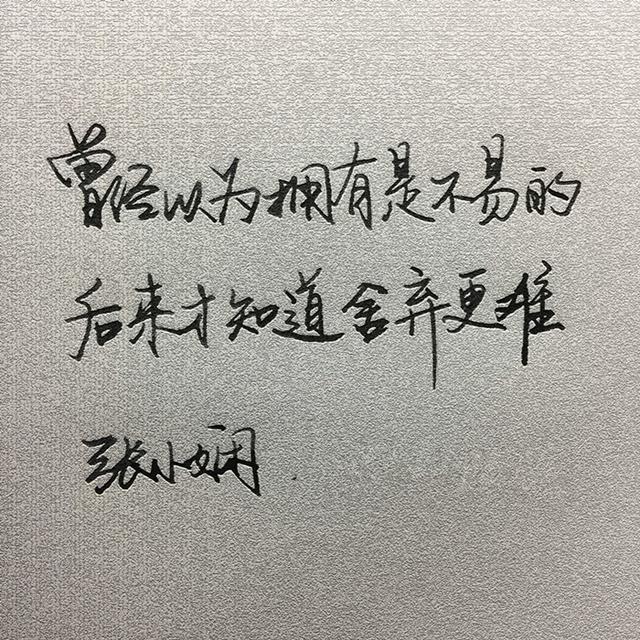 曾经以为拥有是不易的
后来才知道舍弃更难
张小娴